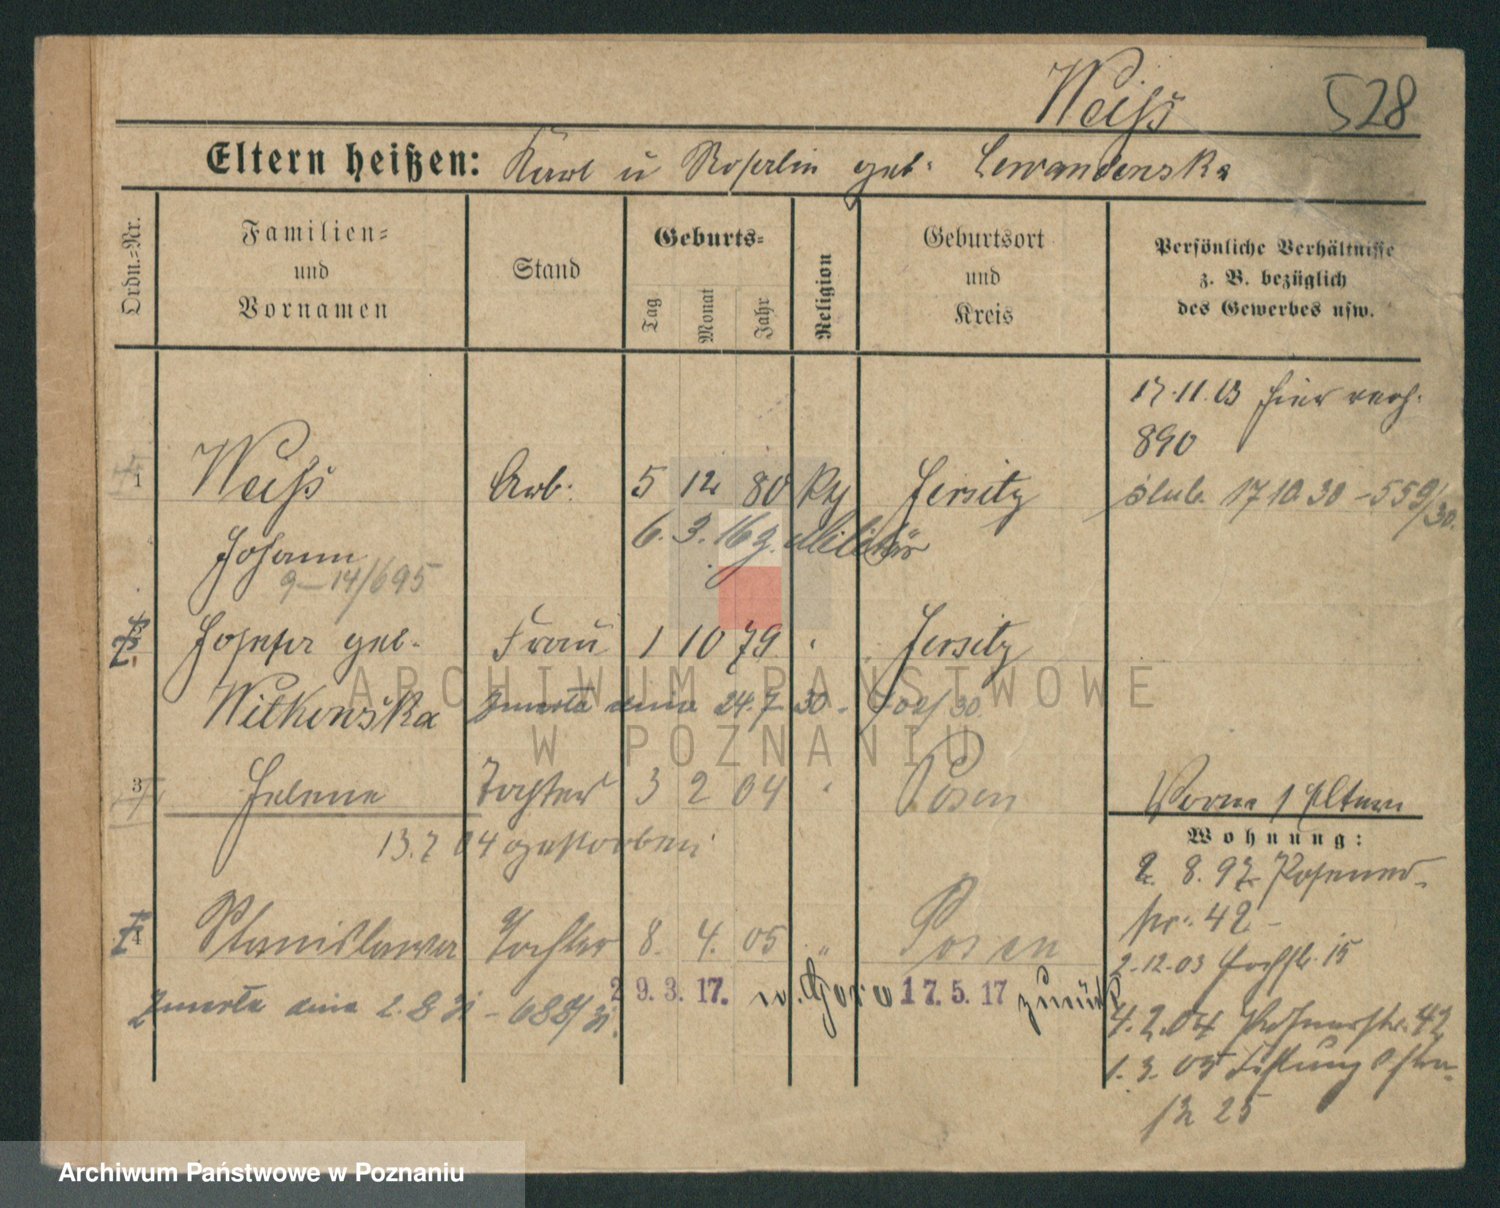 Weiß 528
Eltern heißen: Karl u Rosalin geb. Lewandowska
Ordn.=Nr.
Familien=
und
Vornamen
Stand
Geburts=
Tag
Monat
Jahr
Religion
Geburtsort
und
Kreis
Persönliche Verhältnisse
z. B. bezüglich
des Gewerbes usw.
17.11.03 hier
890
1 Weiß Arb. 5 12 80 Jersitz
ślub. 17 10 30 - 559/30.
Johann 6. 3. 16 z. Militär
9-14/695
Josefa geb. Frau 1 10 79 Jersitz
Witkowska zmarła dnia 24.7 30 -
3 Helene Tochter 3 2 04 " Posen
13.7 04 gestorben
Vorne / Eltern
Wohnung:
4 Stanislawa Tochter 8. 4. 05 " Posen
Zmarła dnia 2.8 31 - 688/31.
29.3.17. 17.5.17 zurück
2. 8. 97 Posener-
str. 42 -
2.12.03 15
4.2.04 Posenerstr. 42
1. 3. 05
25
ARCHIWUM PAŃSTWOWE
W POZNANIU
Archiwum Państwowe w Poznaniu